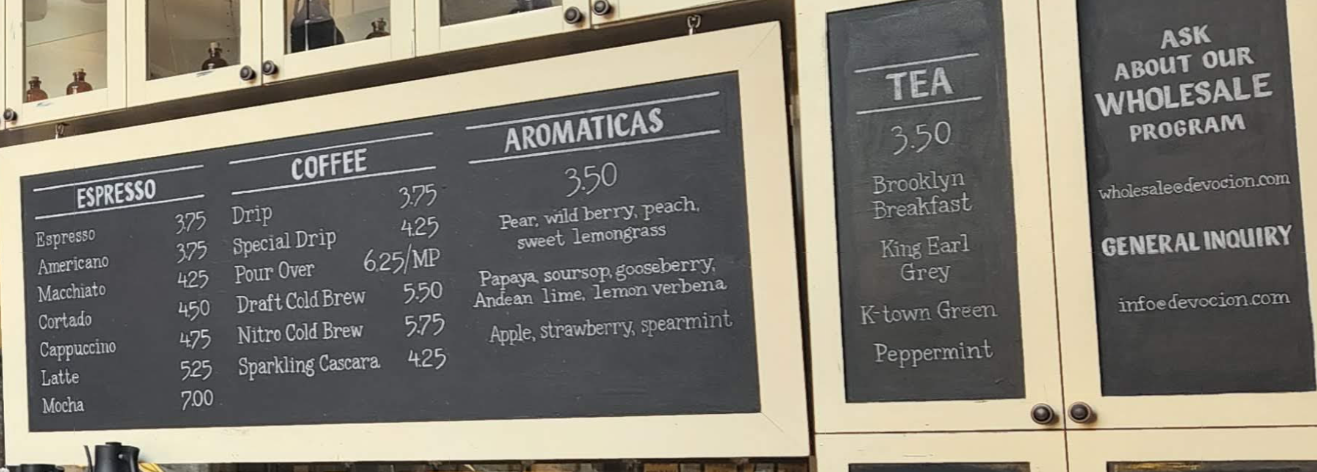 ESPRESSO
Espresso 3.75
Americano 3.75
Macchiato 4.25
Cortado 4.50
Cappuccino 4.75
Latte 5.25
Mocha 7.00
COFFEE
Drip 3.75
Special Drip 4.25
Pour Over 6.25/MP
Draft Cold Brew 5.50
Nitro Cold Brew 5.75
Sparkling Cascara 4.25
AROMATICAS
3.50
Pear, wild berry, peach,
sweet lemongrass
Papaya, soursop, gooseberry,
Andean lime, lemon verbena
Apple, strawberry, spearmint
TEA
3.50
Brooklyn
Breakfast
King Earl
Grey
K-town Green
Peppermint
ASK
ABOUT OUR
WHOLESALE
PROGRAM
wholesale@devocion.com
GENERAL INQUIRY
info@devocion.com